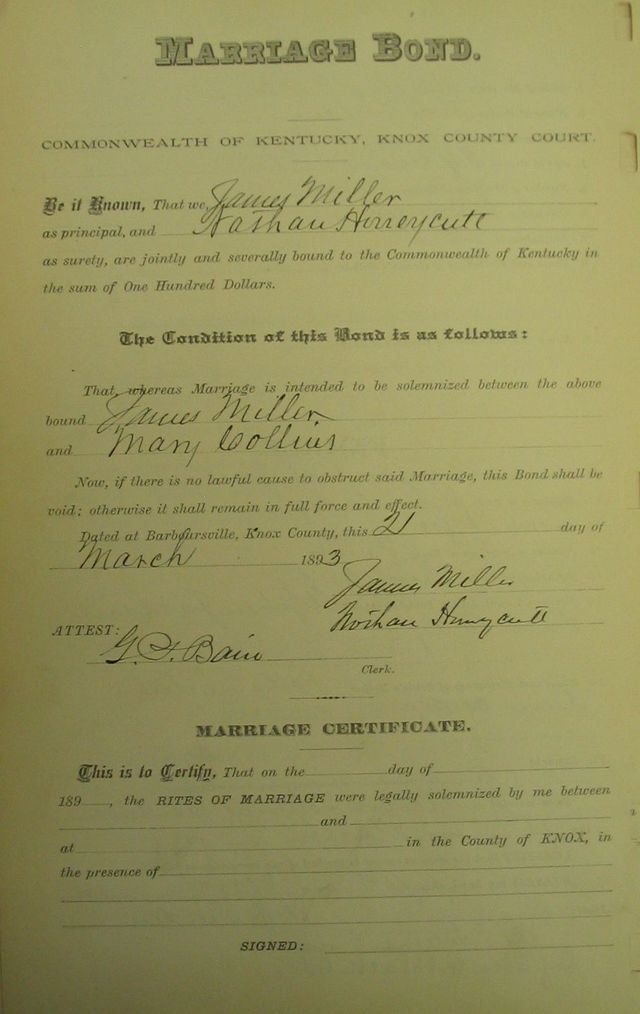 MARRIAGE BOND.
COMMONWEALTH OF KENTUCKY, KNOX COUNTY COURT.
Be it Known, That we, James Miller
as principal, and Nathan Honeycutt
as surety, are jointly and severally bound to the Commonwealth of Kentucky in
the sum of One Hundred Dollars.
The Condition of this Bond is as follows:
That, whereas Marriage is intended to be solemnized between the above
bound James Miller
and Mary Collins
Now, if there is no lawful cause to obstruct said Marriage, this Bond shall be
void; otherwise it shall remain in full force and effect.
Dated at Barboursville, Knox County, this 21 day of
March 1893
James Miller
Nathan Honeycutt
ATTEST:
G. F. Bain
Clerk.
MARRIAGE CERTIFICATE.
This is to Certify, That on the day of
189 , the RITES OF MARRIAGE were legally solemnized by me between
and
at in the County of KNOX, in
the presence of
SIGNED: